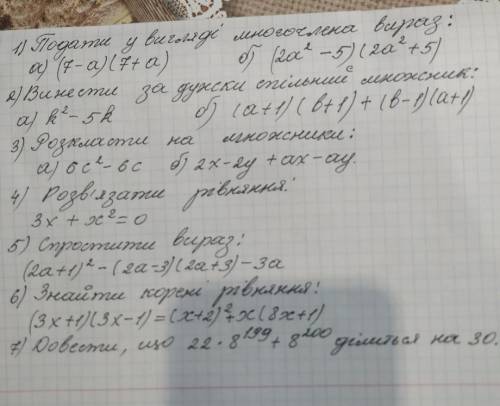 1) Подати у вигляді многочлена вираз:
а) (7-а)(7+а) б) (2а²-5)(2а²+5)
2) Винести за дужки спільний множник:
а) k²-5k б) (а+1)(в+1)+(в-1)(а+1)
3) Розкласти на множники:
а) 6с²-6с б) 2х-2у+ах-ау.
4) Розв'язати рівняння:
3х+х²=0
5) Спростити вираз:
(2а+1)²-(2а-3)(2а+3)-3а
6) Знайти корені рівняння:
(3х+1)(3х-1)=(х+2)²+х(8х+1)
7) Довести, що 22·8¹⁹⁹+8²⁰⁰ ділиться на 30.